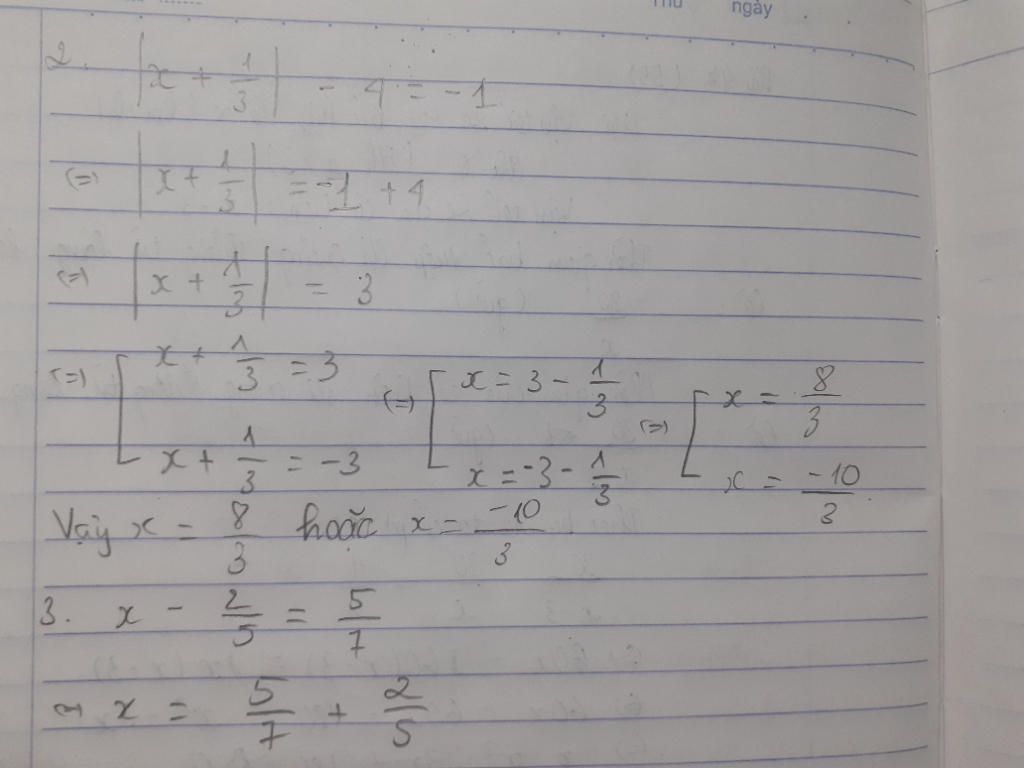 Thứ ngày
2. |x + 1/3| - 4 = -1
(=) |x + 1/3| = -1 + 4
(=) |x + 1/3| = 3
(=) [ x + 1/3 = 3 (=) [ x = 3 - 1/3 (=) [ x = 8/3
x + 1/3 = -3 x = -3 - 1/3 x = -10/3
Vậy x = 8/3 hoặc x = -10/3
3. x - 2/5 = 5/7
(=) x = 5/7 + 2/5